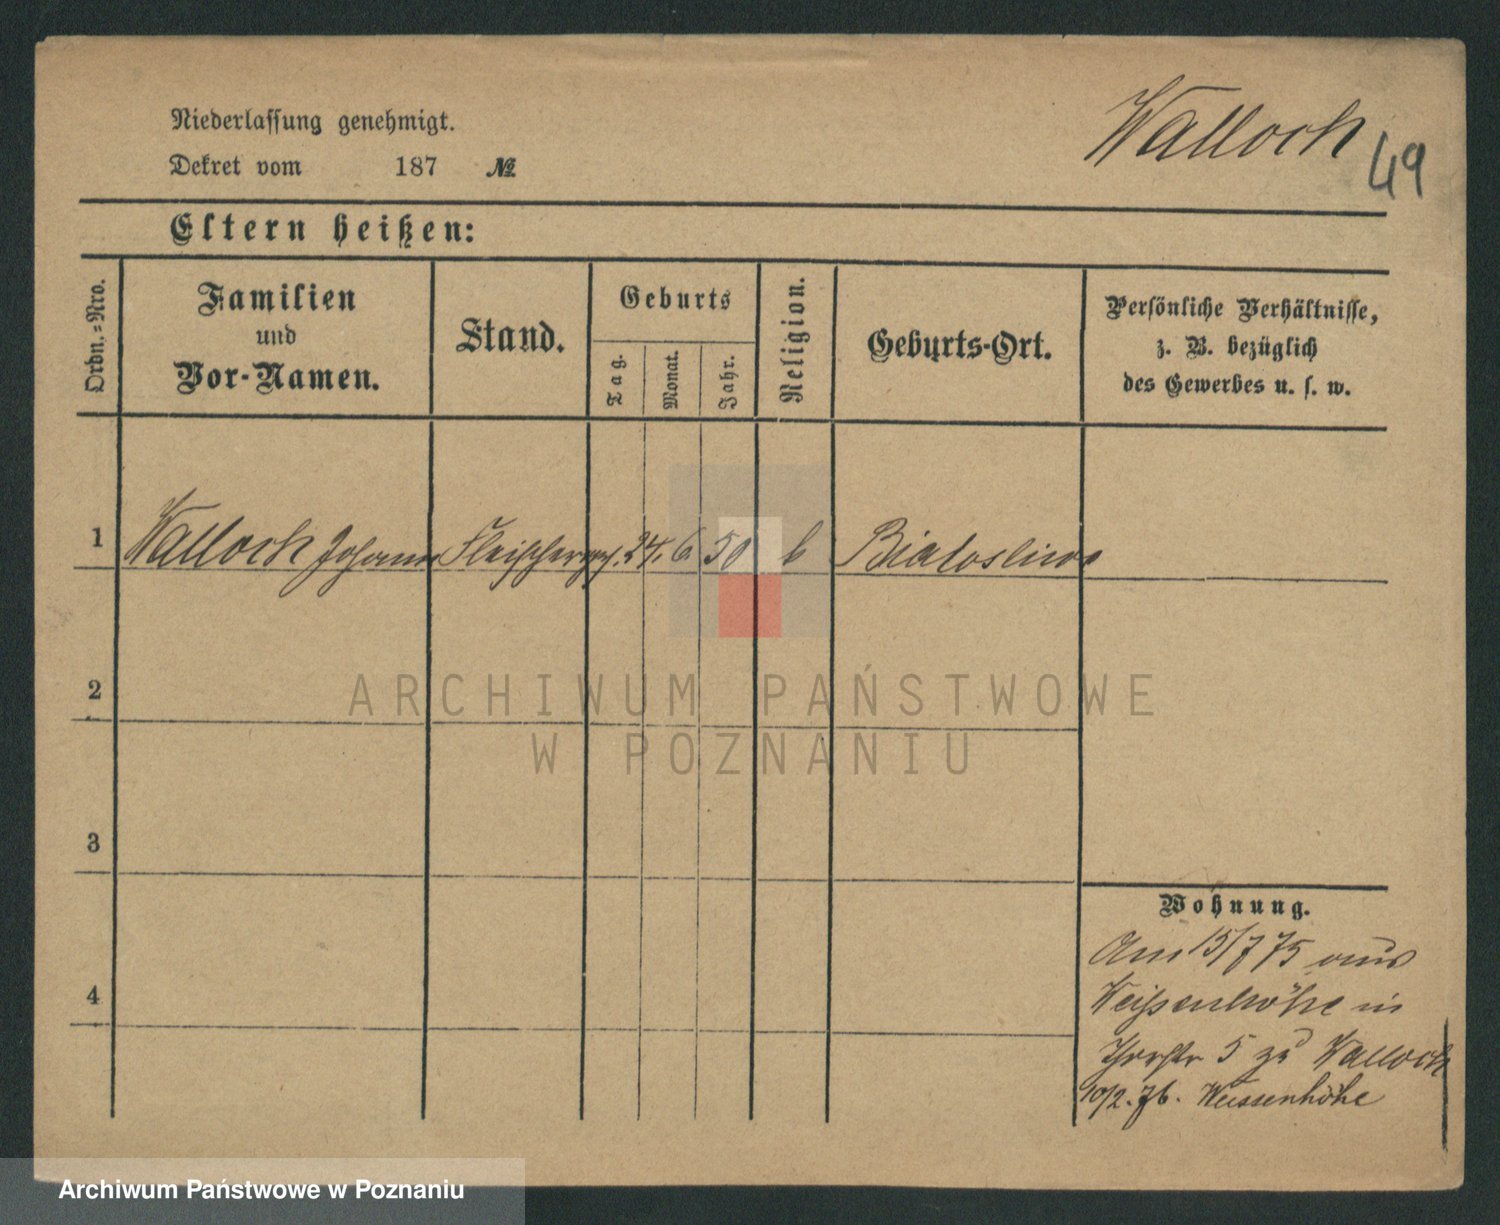 Niederlassung genehmigt.
Dekret vom 187 №
Walloch
49
Eltern heißen:
Ordn.=Nro.
Familien
und
Vor-Namen.
Stand.
Geburts
Tag.
Monat.
Jahr.
Religion.
Geburts-Ort.
Persönliche Verhältnisse,
z. B. bezüglich
des Gewerbes u. s. w.
1 Walloch Johann Fleischerges. 24. 6. 50 Bialosliwo
2
3
4
Wohnung.
Am 15/7 75 aus
Weißenhöhe in
5 zu Walloch
10/2. 76. Weissenhöhe
ARCHIWUM PAŃSTWOWE
W POZNANIU
Archiwum Państwowe w Poznaniu